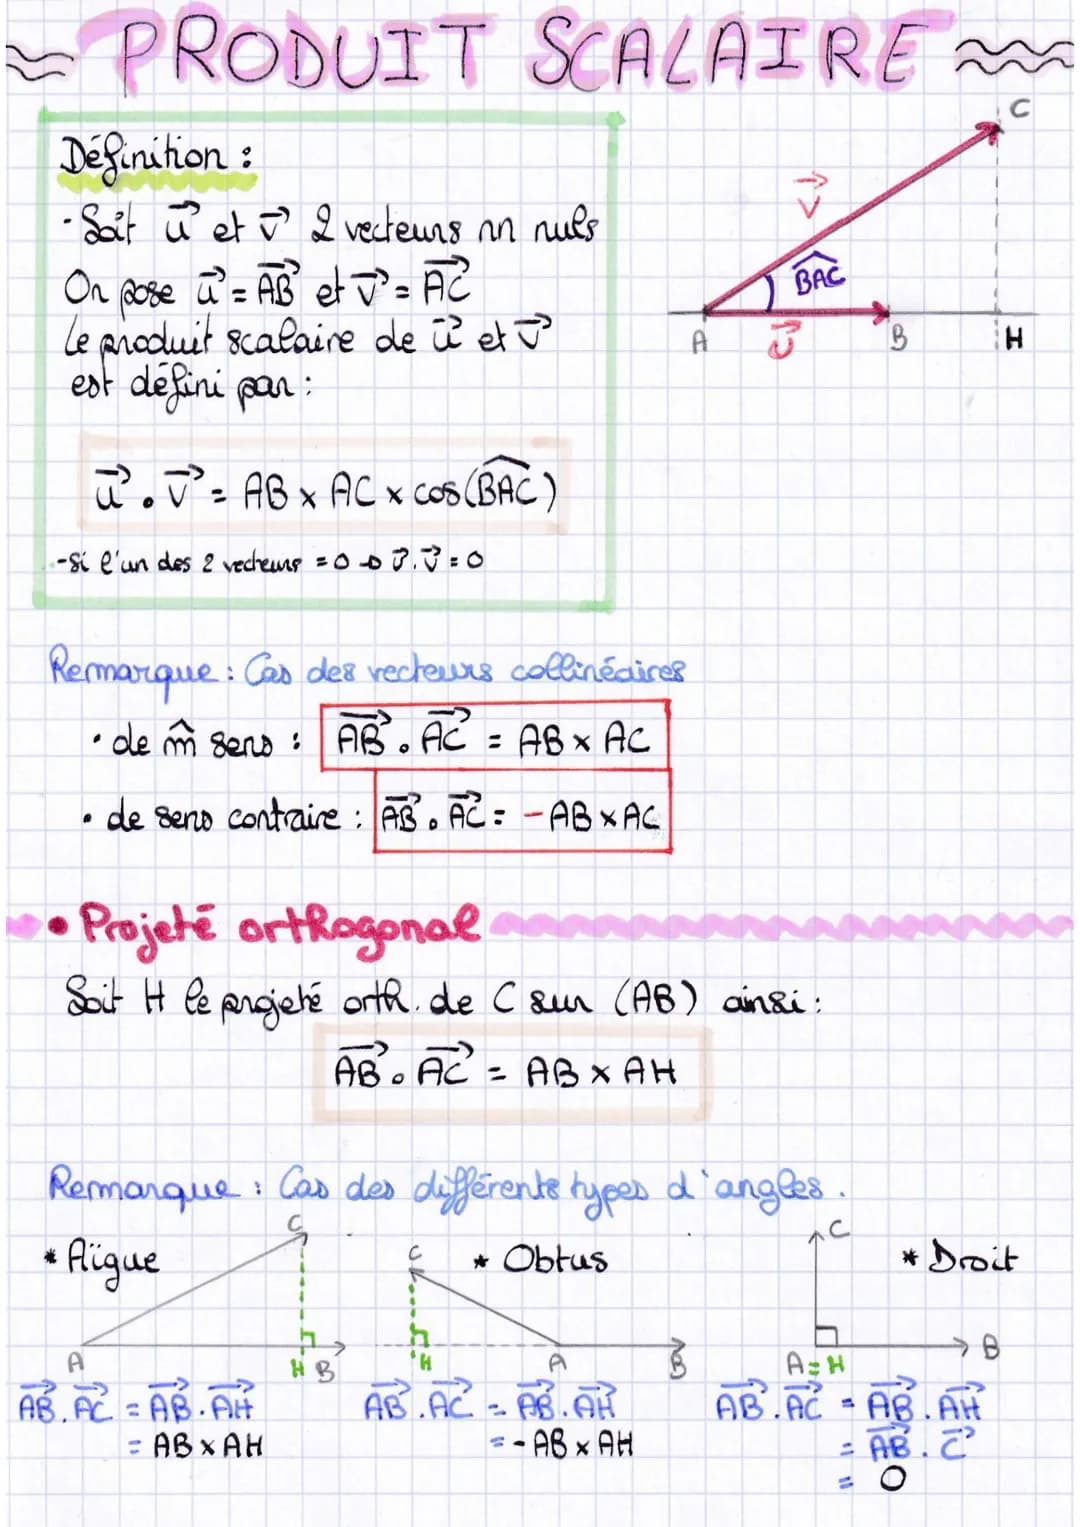 PRODUIT SCALAIRE
Définition :
- Soit u⃗ et v⃗ 2 vecteurs nn nuls
On pose u⃗ = AB⃗ et v⃗ = AC⃗
Le produit scalaire de u⃗ et v⃗
est défini par :
u⃗ . v⃗ = AB x AC x cos(BAC)
-Si l'un des 2 vecteurs = 0 → v⃗.v⃗ = 0
C
v⃗
BAC
A
u⃗
B
H
Remarque : Cas des vecteurs collinéaires
• de m̂ sens : AB⃗ . AC⃗ = AB x AC
• de sens contraire : AB⃗ . AC⃗ = - AB x AC
• Projeté orthogonal
Soit H le projeté orth. de C sur (AB) ainsi :
AB⃗ . AC⃗ = AB x AH
Remarque : Cas des différents types d'angles.
* Aïgue
C
A
H
B
AB⃗ . AC⃗ = AB⃗ . AH⃗
= AB x AH
* Obtus
C
H
A
B
AB⃗ . AC⃗ = AB⃗ . AH⃗
= - AB x AH
* Droit
C
A = H
B
AB⃗ . AC⃗ = AB⃗ . AH⃗
= AB⃗ . C⃗
= 0